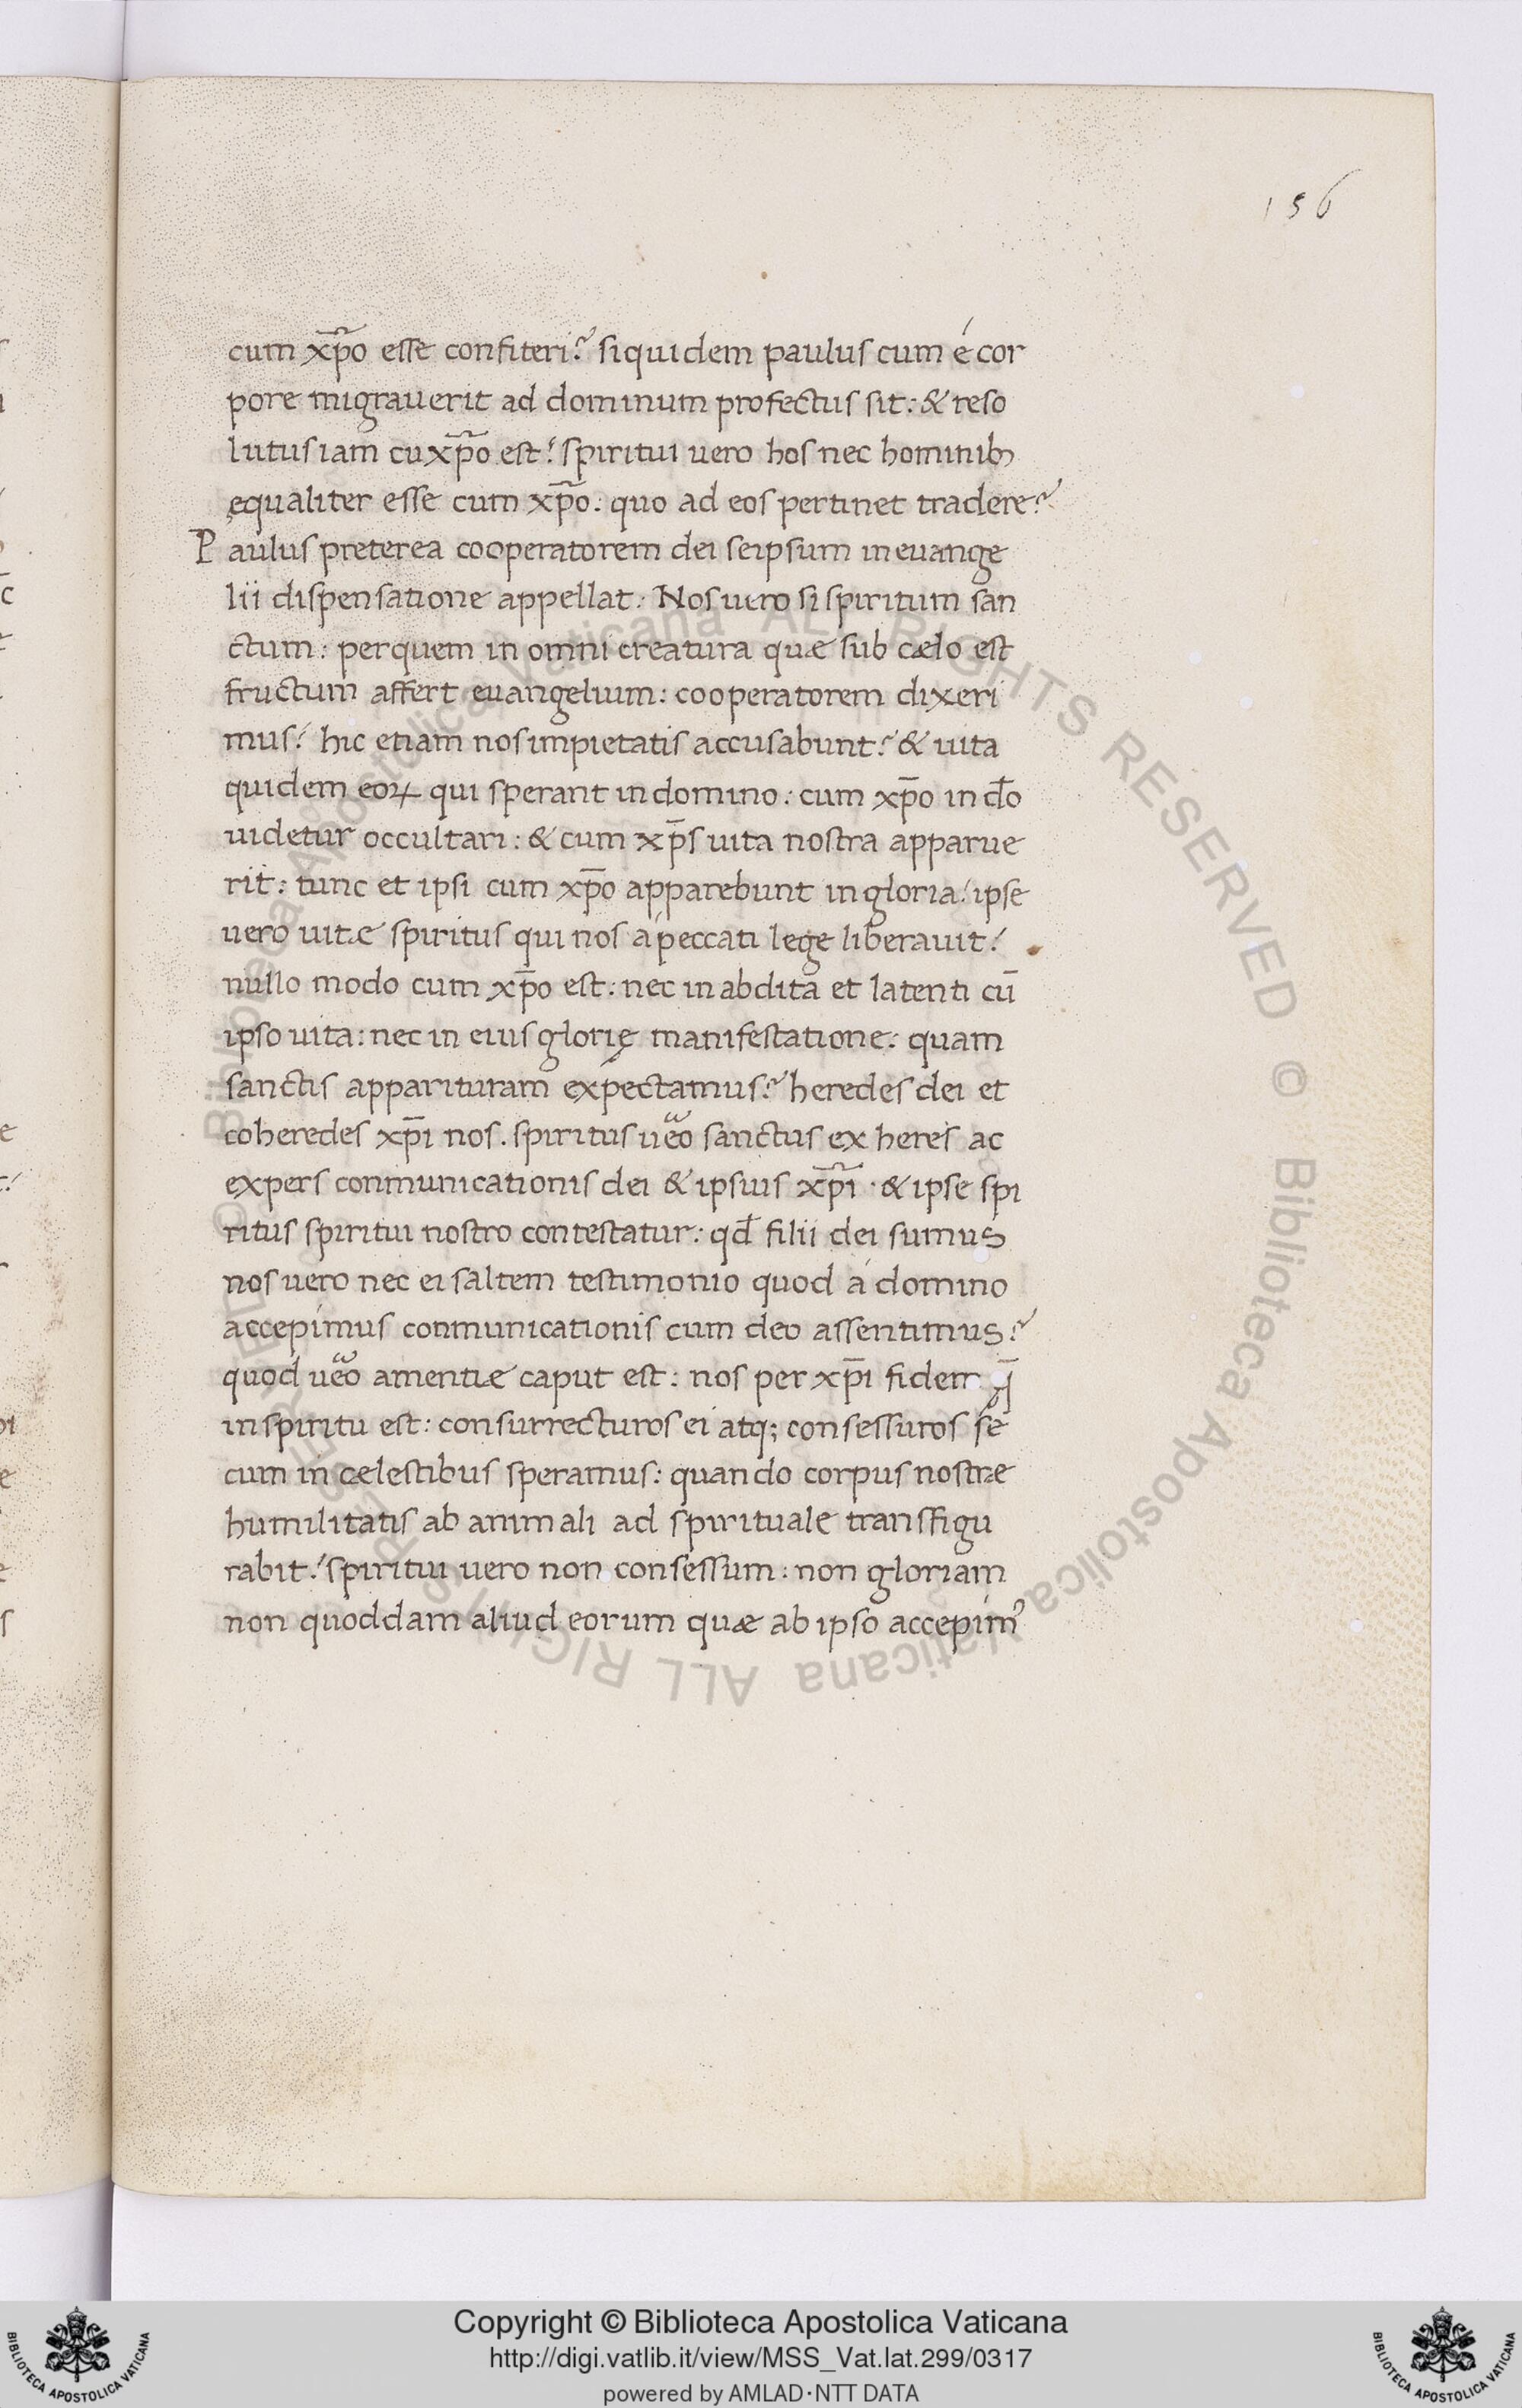 156
cum xp̄o esse confiteri? siquidem paulus cum é cor
pore migrauerit ad dominum profectus sit: & reso
lutus iam cu xp̄o est! spiritui uero hos nec hominibꝫ
ęqualiter esse cum xp̄o: quo ad eos pertinet tradere?
Paulus preterea cooperatorem dei seipsum in euange
lii dispensatione appellat: Nos uero si spiritum san
ctum: per quem in omni creatura quæ sub cælo est
fructum affert euangelium: cooperatorem dixeri
mus! hic etiam nos impietatis accusabunt? & uita
quidem eoꝝ qui sperant in domino: cum xp̄o in do̅
uidetur occultari: & cum xp̄s uita nostra apparue
rit: tunc et ipsi cum xp̄o apparebunt in gloria! ipse
uero uitæ spiritus qui nos á peccati lege liberauit!
nullo modo cum xp̄o est: nec in abdita et latenti cū
ipso uita: nec in eius glorię manifestatione: quam
sanctis apparituram expectamus? heredes dei et
coheredes xp̄i nos. spiritus ueo sanctus ex heres ac
expers conmunicationis dei & ipsius xp̄i · & ipse spi
ritus spiritui nostro contestatur: qd̄ filii dei sumus
nos uero nec ei saltem testimonio quod á domino
accepimus conmunicationis cum deo assentimus?
quod ueo amentiæ caput est: nos per xp̄i fidem q̄
in spiritu est: consurrecturos ei atq; consessuros se
cum in cælestibus speramus: quando corpus nostræ
humilitatis ab animali ad spirituale transfigu
rabit! spiritui uero non consessum: non gloriam
non quoddam aliud eorum quæ ab ipso accepimꝰ
© Biblioteca Apostolica Vaticana ALL RIGHTS RESERVED © Biblioteca Apostolica Vaticana ALL RIGHTS RESERVED
Copyright © Biblioteca Apostolica Vaticana
http://digi.vatlib.it/view/MSS_Vat.lat.299/0317
powered by AMLAD·NTT DATA
BIBLIOTECA APOSTOLICA VATICANA
BIBLIOTECA APOSTOLICA VATICANA